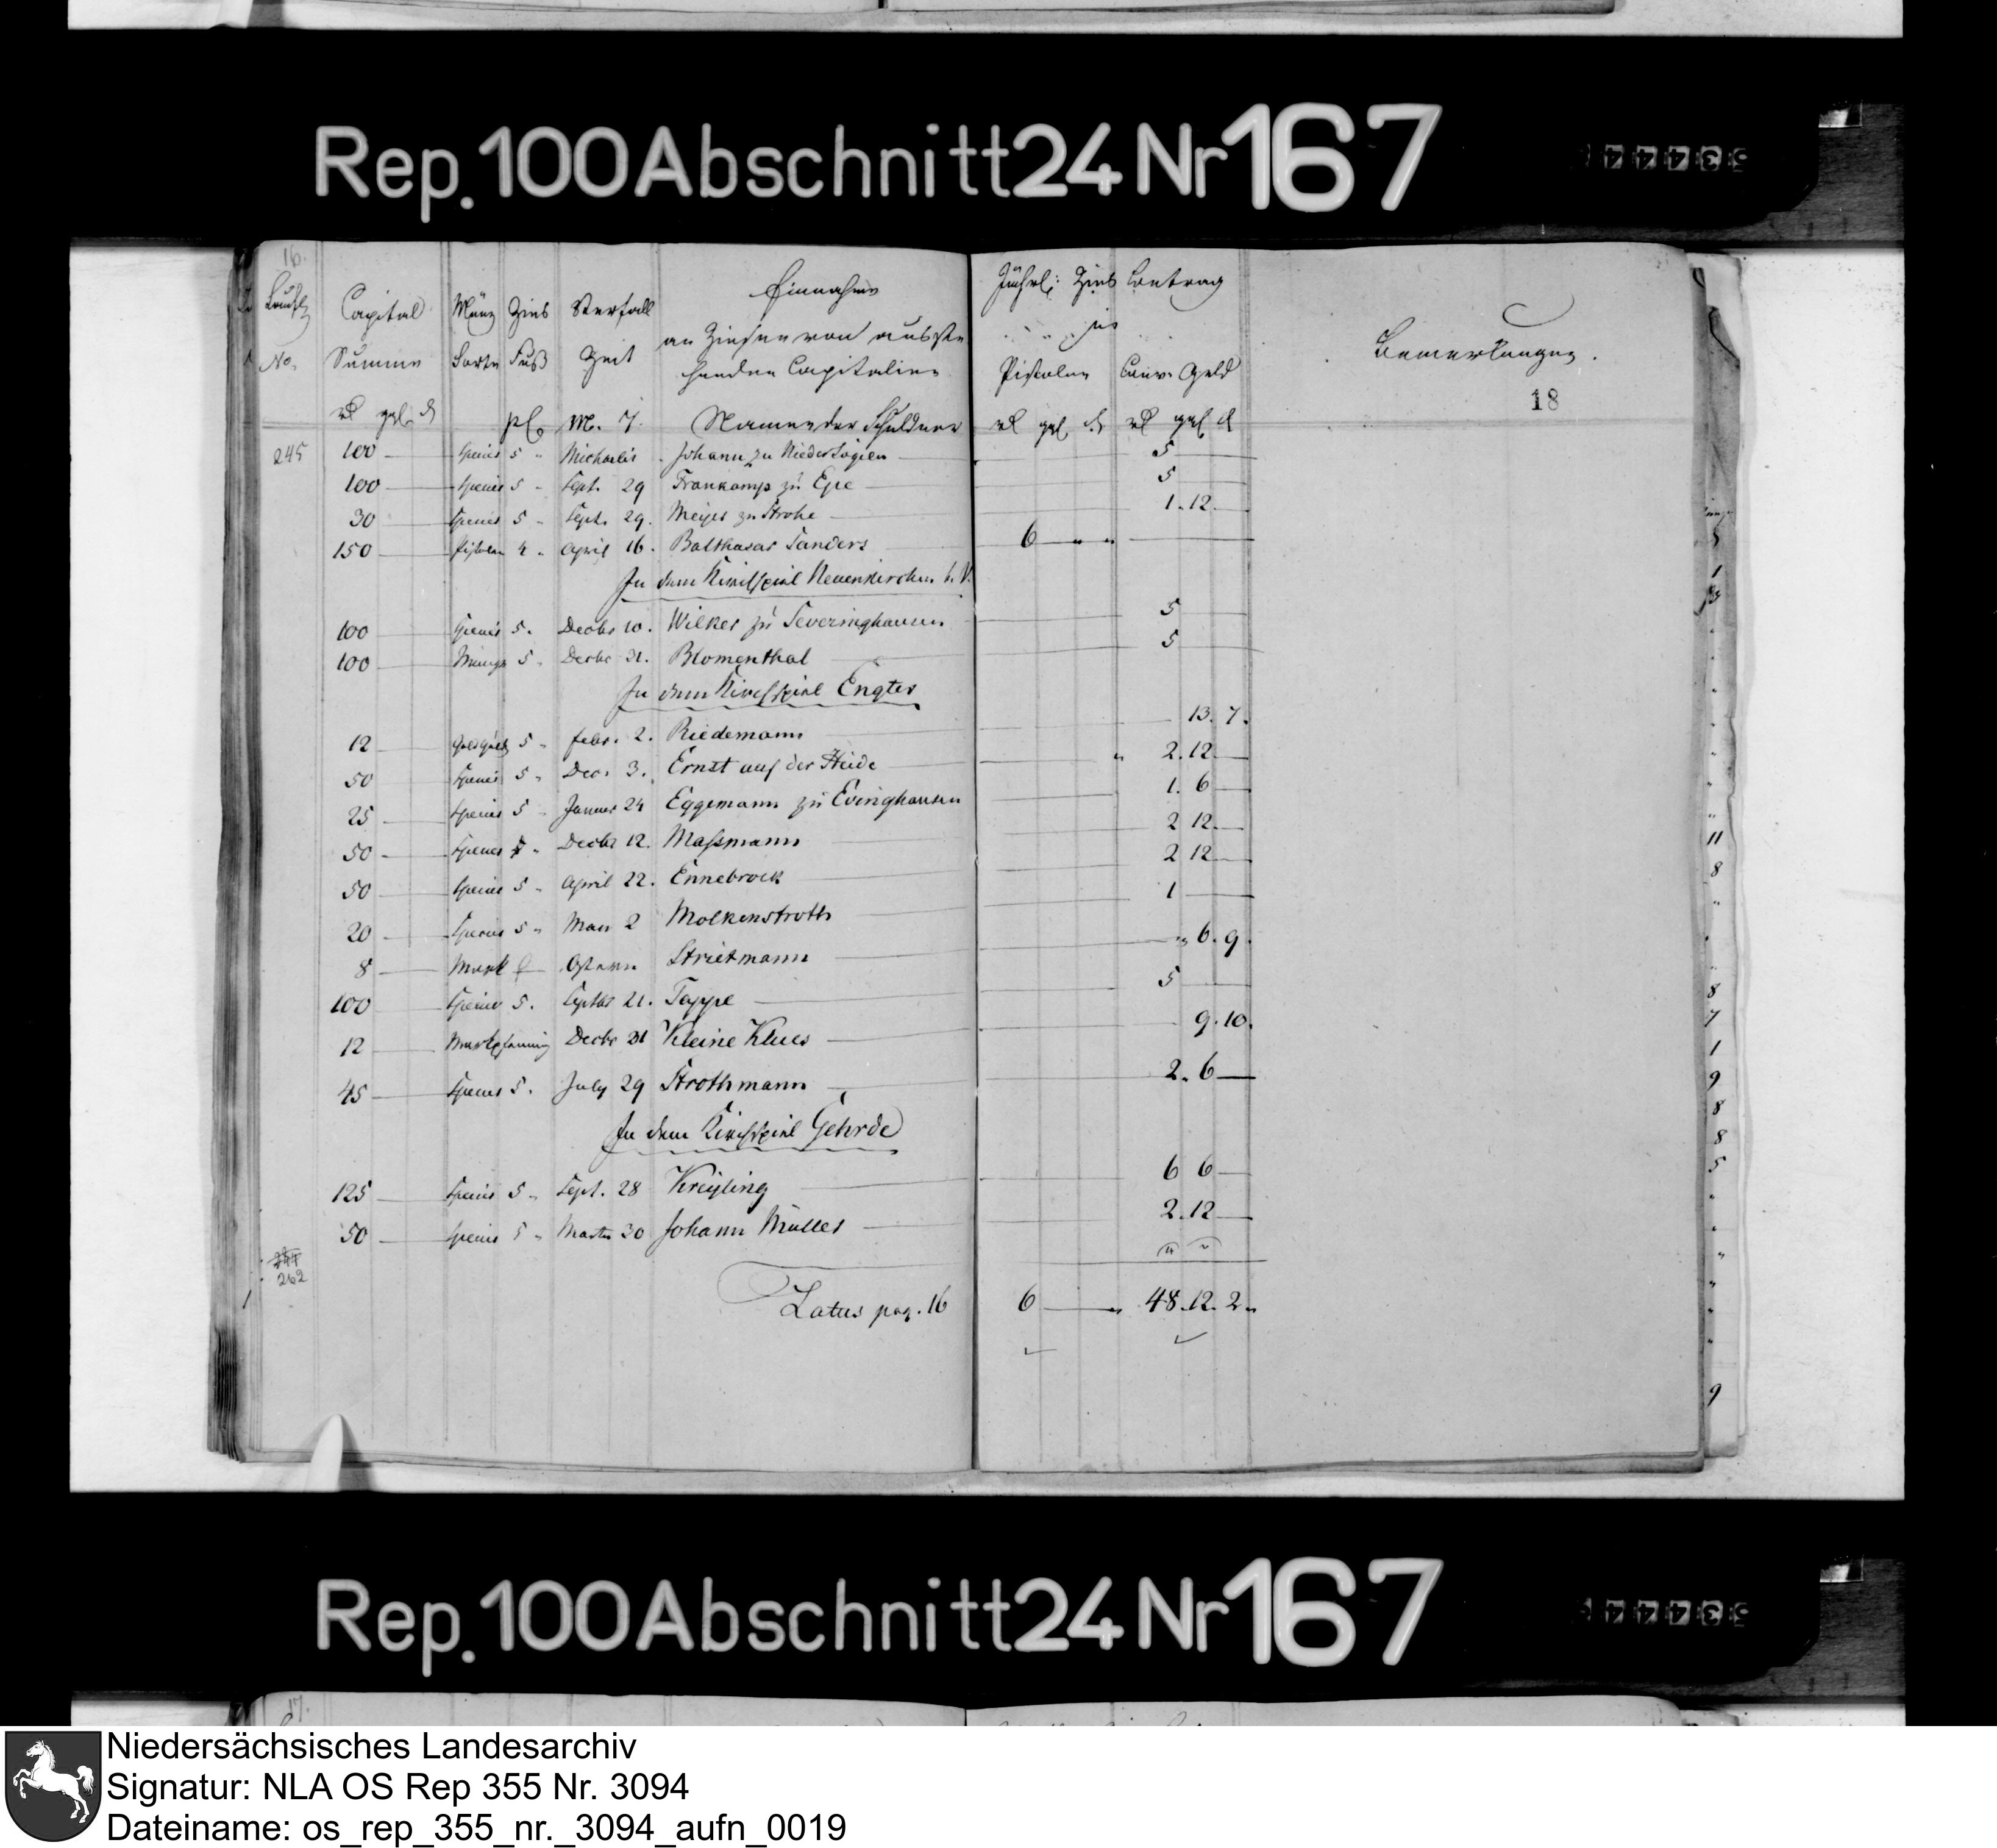 Rep. 100 Abschnitt 24 Nr 167
53444
16.
Laufd. No. Capital Summe Münz Sorte Zins Fuß Verfall Zeit Einnahme an Zinsen von ausste henden Capitalien Jährl: Zins Betrag in Pistolen Conv. Geld Bemerkungen.
18
M. T. Namen der Schuldner
245 100 Species 5 " Michaelis Johann zu Nieder 5
100 Species 5 " Sept. 29 Frankamp zu Epe 5
30 Species 5 " Sept. 29. Meyer zu Strohe 1. 12.
150 Pistolen 4 " April 16. Balthasar Sanders 6 " "
In dem Kirchspiel Neuenkirchen b. V.
100 Species 5. Decbr 10. Wilker zu Severinghausen 5
100 Münze 5 " Decbr 31. Blomenthal 5
In dem Kirchspiel Engter
12 5 " Febr. 2. Riedemann 13. 7.
50 Species 5 " Dec. 3. Ernst auf der Heide " 2. 12.
25 Species 5 " Januar 24 Eggemann zu Evinghausen 1. 6
50 Species 5 " Decbr 12. Maßmann 2 12.
50 Species 5 " April 22. Ennebrock 2 12
20 Species 5 " May 2 Molkenstroth 1
8 Mark Ostern Strietmann " 6. 9.
100 Species 5. Septbr 21. Tappe 5
12 Markpfenning Decbr 31 Kleine Klues 9. 10.
45 Species 5. July 29 Strothmann 2. 6
In dem Kirchspiel Gehrde
125 Species 5 " Sept. 28 Kreyling 6 6
50 Species 5 " Martii 30 Johann Müller 2. 12
262
Latus pag. 16 6 " 48. 12. 2 "
Rep. 100 Abschnitt 24 Nr 167
53444
17.
Niedersächsisches Landesarchiv
Signatur: NLA OS Rep 355 Nr. 3094
Dateiname: os_rep_355_nr._3094_aufn_0019